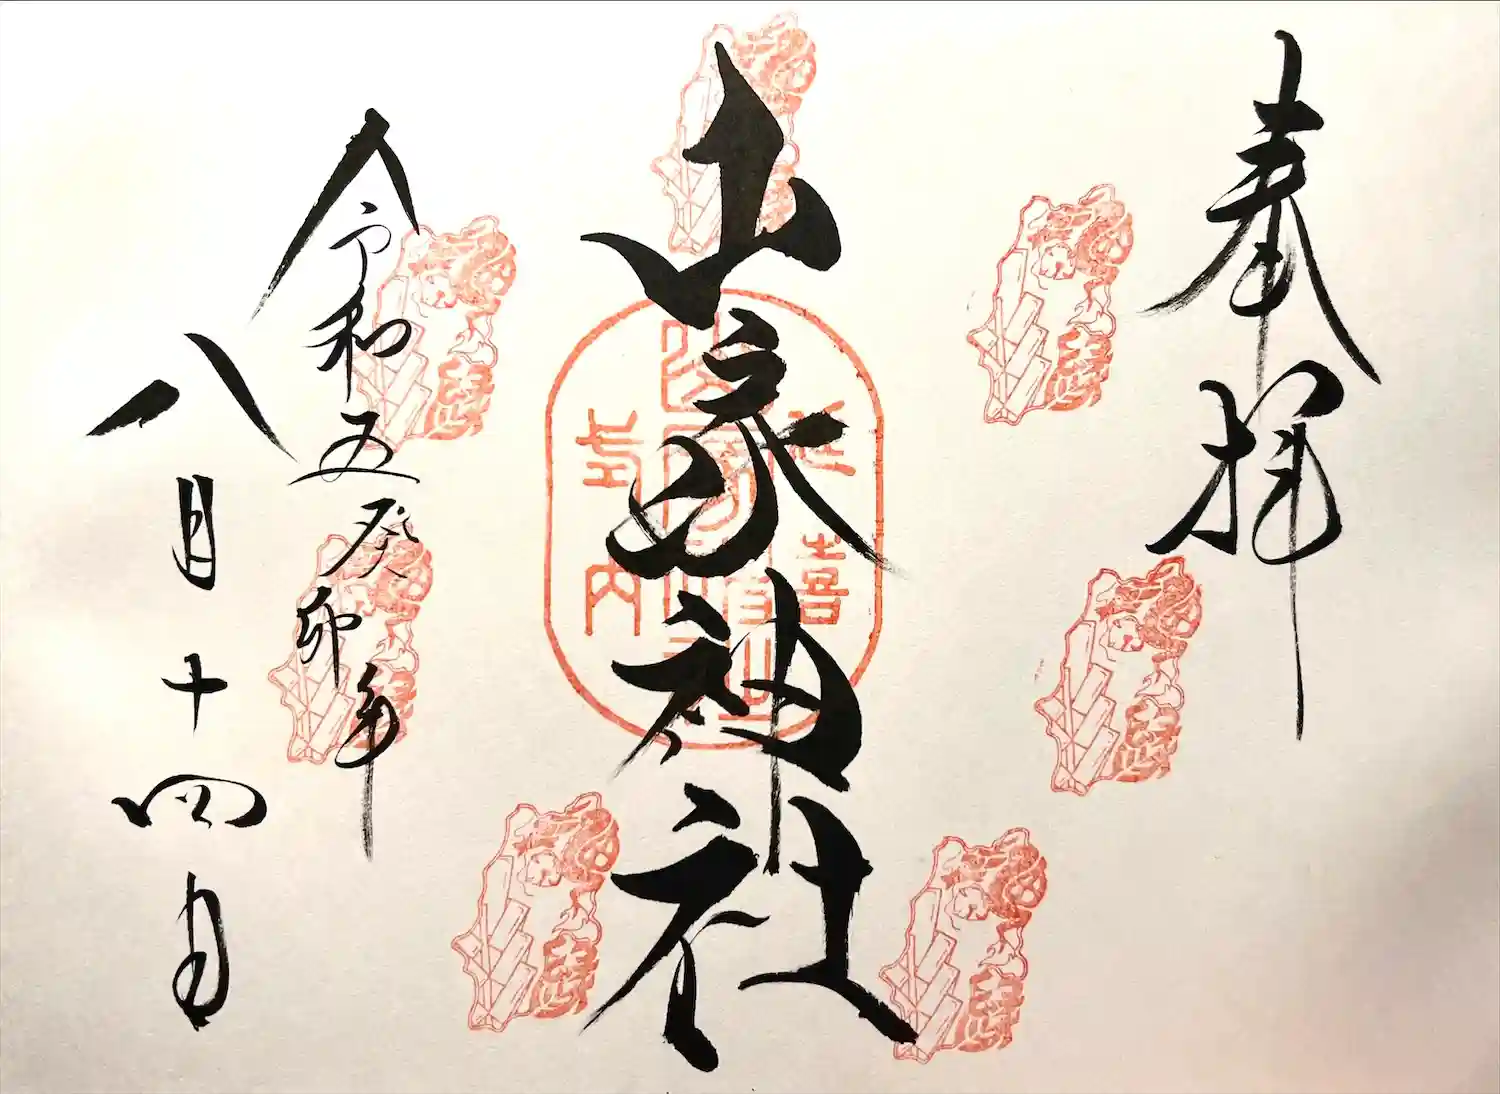 奉拝
山家神社
延喜
式内
令和五癸卯年
八月十四日